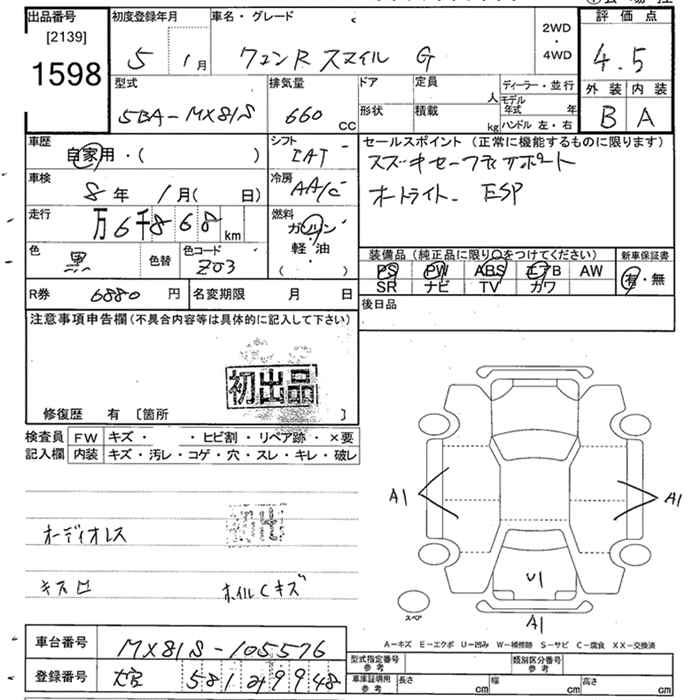 出品番号 初度登録年月 車名・グレード 評価点
[2139] 2WD
1598 5 1月 ワゴンR スマイル G ・ 4WD 4.5
型式 排気量 ドア 定員 人 ディーラー・並行 外装 内装
5BA-MX81S 660 CC 形状 積載 kg モデル年式 年 B A
ハンドル 左・右
車歴 シフト セールスポイント (正常に機能するものに限ります)
自家用・( ) IAT スズキセーフティサポート
車検 8年 1月( 日) 冷房 AA/C オートライト ESP
走行 万6千868km 燃料 ガソリン・軽油 ( )
色 黒 色替 色コード Z03 装備品 (純正品に限り○をつけてください) 新車保証書
PS PW ABS エアB AW 有・無
SR ナビ TV カワ
R券 6880円 名変期限 月 日 後日品
注意事項申告欄(不具合内容等は具体的に記入して下さい)
初出品
修復歴 有 〔箇所 〕
検査員 FW キズ・ ・ヒビ割・リペア跡・×要
記入欄 内装 キズ・汚レ・コゲ・穴・スレ・キレ・破レ
A1 A1
初出
オーディオレス
U1
キズ ホイルCキズ
スペア
A1
A-キズ E-エクボ U-凹み W-補修跡 S-サビ C-腐食 XX-交換済
車台番号 MX81S-105576 型式指定番号 参考 類別区分番号 参考
登録番号 581 9948 参考 参考 車庫証明用 参考 長さ cm 幅 cm 高さ cm